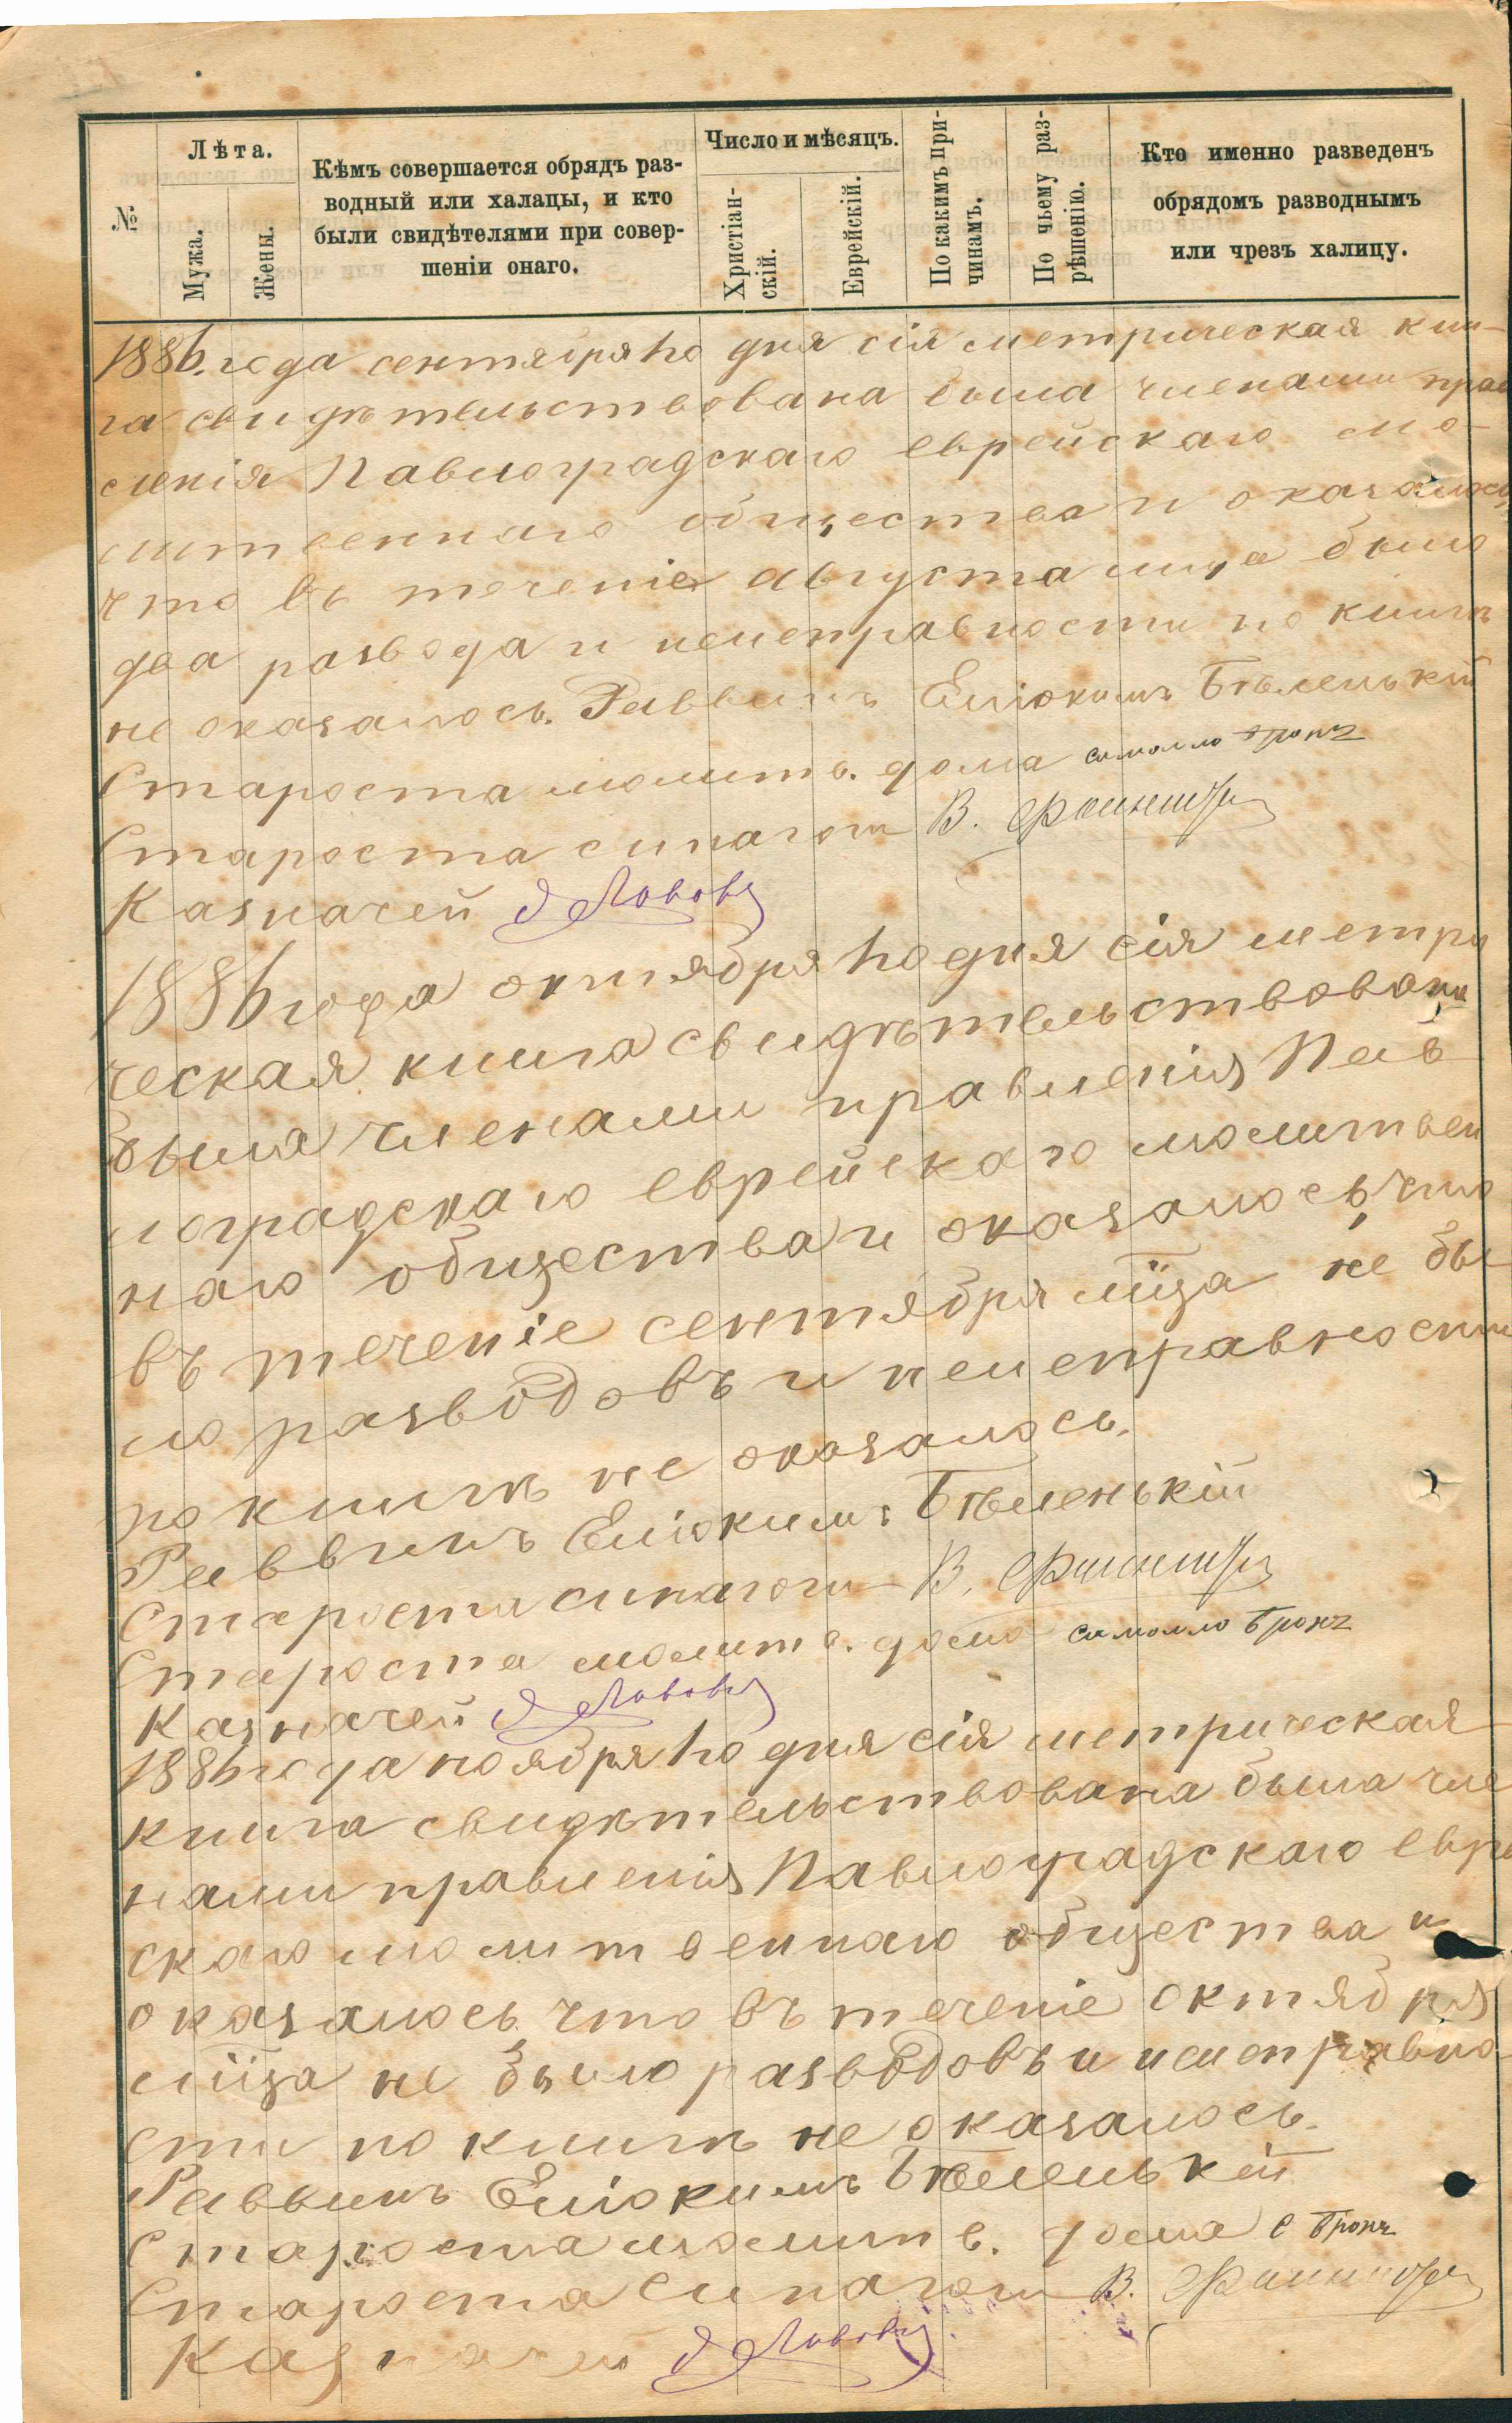 №
Лѣта.
Мужа.
Жены.
Кѣмъ совершается обрядъ раз-
водный или халацы, и кто
были свидѣтелями при совер-
шеніи онаго.
Число и мѣсяцъ.
Христіан-
скій.
Еврейскій.
По какимъ при-
чинамъ.
По чьему раз-
рѣшенію.
Кто именно разведенъ
обрядомъ разводнымъ
или чрезъ халицу.
1886 года сентября го дня сія метрическая кни-
га свидѣтельствована была членами прав
сленія Павлоградскаго еврейскаго мо-
литвеннаго общества и оказалось
что въ теченіе августа мца было
два развода и неисправности по книгѣ
не оказалось. Раввинъ Еліокимъ Бѣленькій
Староста молитв. дома
Староста синагоги В.
Казначей
1886 года октября го дня сія метри
ческая книга свидѣтельствована
была членами правленія Пав-
лоградскаго еврейскаго молитвен
наго общества и оказалось, что
въ теченіе сентября мца не бы-
ло разводовъ и неисправности
по книгѣ не оказалось.
Раввинъ Еліокимъ Бѣленькій
Староста синагоги В.
Староста молитв. дома
Казначей
1886 года ноября го дня сія метрическая
книга свидѣтельствована была чле
нами правленія Павлоградскаго евре
скаго молитвеннаго общества и
оказалось что въ теченіе октября
мца не было разводовъ и неисправно-
сти по книгѣ не оказалось.
Раввинъ Еліокимъ Бѣленькій
Староста молитв. дома
Староста синагоги В.
Казначей